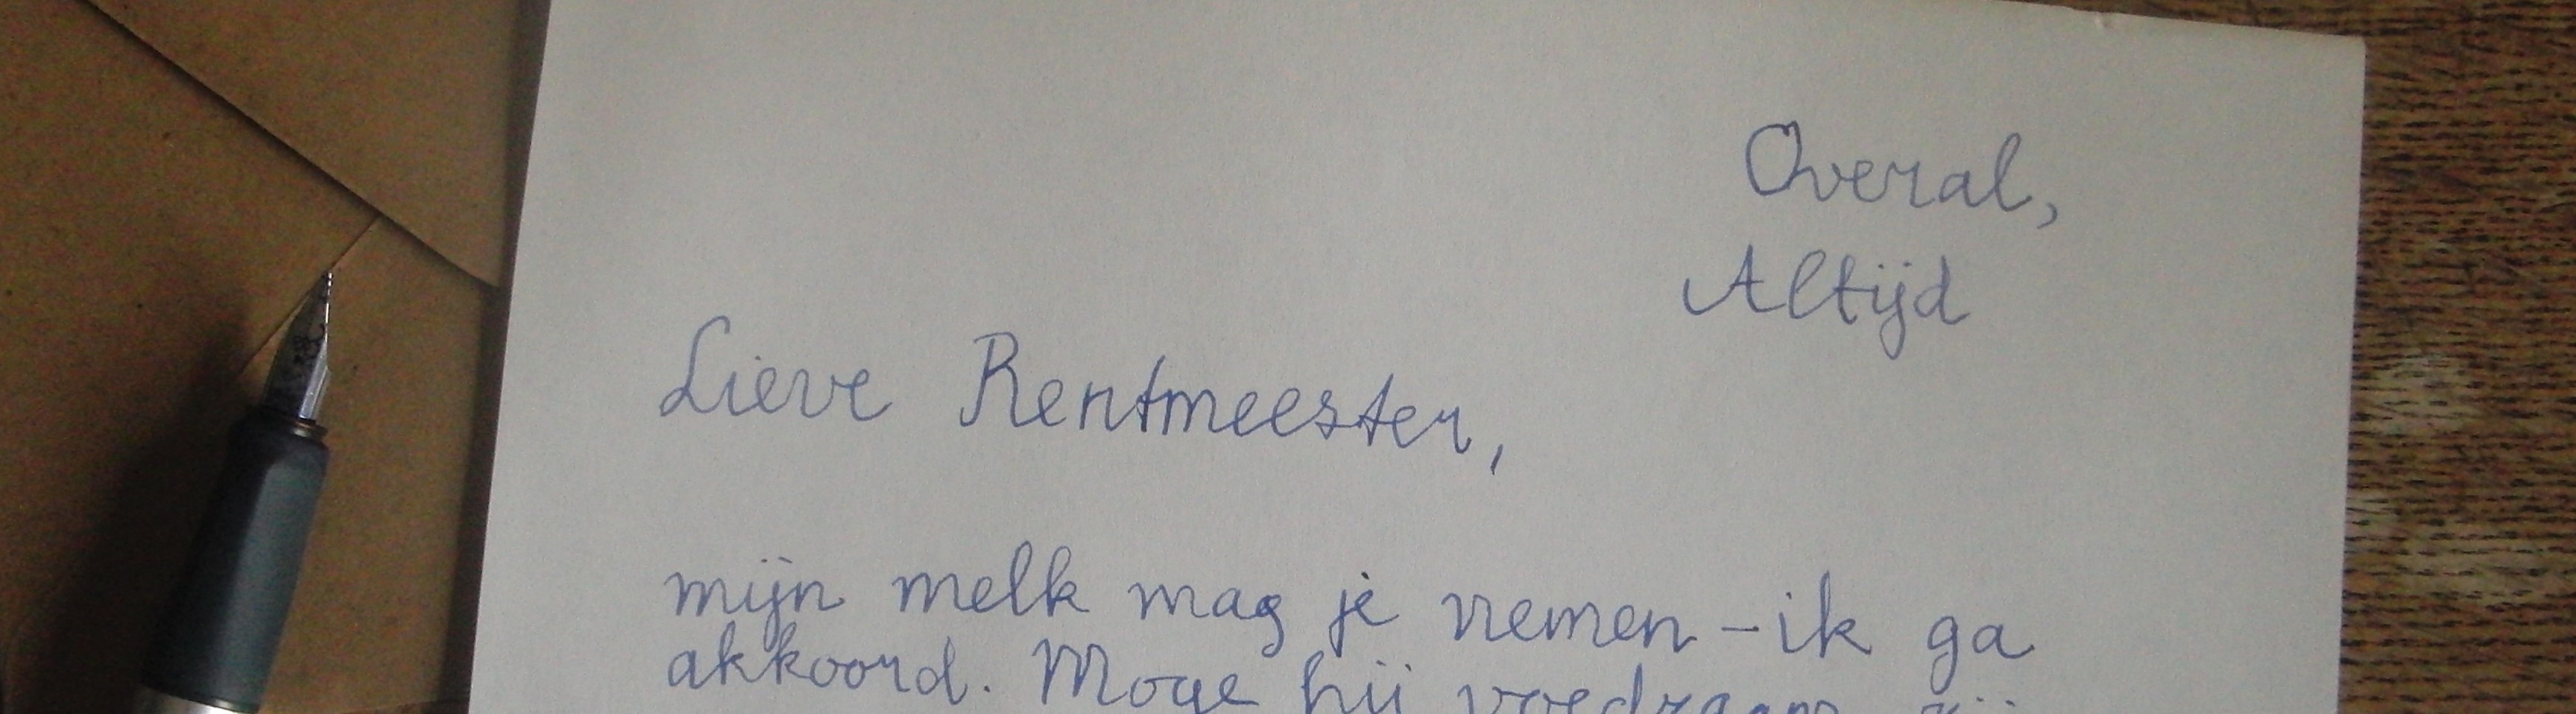 Overal,
Altijd
Lieve Rentmeester,
mijn melk mag je nemen – ik ga
akkoord. Moge hij voedzaam zij